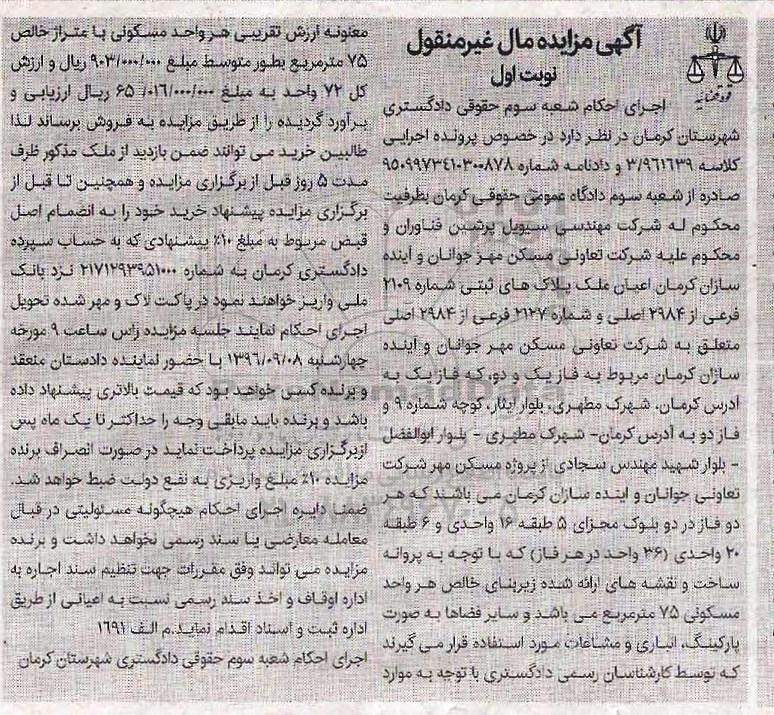 آگهی مزایده مال غیرمنقول
نوبت اول
قوه قضائیه
اجرای احکام شعبه سوم حقوقی دادگستری
شهرستان کرمان در نظر دارد در خصوص پرونده اجرایی
کلاسه ۳/۹۶۱۶۳۹ و دادنامه شماره ۹۵۰۹۹۷۳۴۱۰۳۰۰۸۷۸
صادره از شعبه سوم دادگاه عمومی حقوقی کرمان بظرفیت
محکوم له شرکت مهندسی سیویل پرشین فناوران و
محکوم علیه شرکت تعاونی مسکن مهر جوانان و آینده
سازان کرمان اعیان ملک پلاک های ثبتی شماره ۲۱۰۹
فرعی از ۲۹۸۴ اصلی و شماره ۲۱۲۷ فرعی از ۲۹۸۴ اصلی
متعلق به شرکت تعاونی مسکن مهر جوانان و اینده
سازان کرمان مربوط به فاز یک و دو، که فاز یک به
ادرس کرمان، شهرک مطهری، بلوار ایثار، کوچه شماره ۹ و
فاز دو به آدرس کرمان- شهرک مطهری - بلوار ابوالفضل
- بلوار شهید مهندس سجادی از پروژه مسکن مهر شرکت
تعاونی جوانان و اینده سازان کرمان می باشند که هر
دو فاز در دو بلوک مجزای ۵ طبقه ۱۶ واحدی و ۶ طبقه
۲۰ واحدی (۳۶ واحد در هر فاز) که با توجه به پروانه
ساخت و نقشه های ارائه شده زیربنای خالص هر واحد
مسکونی ۷۵ مترمربع می باشد و سایر فضاها به صورت
پارکینگ، انباری و مشاعات مورد استفاده قرار می گیرند
که توسط کارشناسان رسمی دادگستری با توجه به موارد
معنونه ارزش تقریبی هر واحد مسکونی با متراژ خالص
۷۵ مترمربع بطور متوسط مبلغ ۹۰۳/۰۰۰/۰۰۰ ریال و ارزش
کل ۷۲ واحد به مبلغ ۶۵/۰۱۶/۰۰۰/۰۰۰ ریال ارزیابی و
برآورد گردیده را از طریق مزایده به فروش برساند لذا
طالبین خرید می توانند ضمن بازدید از ملک مذکور ظرف
مدت ۵ روز قبل از برگزاری مزایده و همچنین تا قبل از
برگزاری مزایده پیشنهاد خرید خود را به انضمام اصل
قبض مربوط به مبلغ ۱۰٪ پیشنهادی که به حساب سپرده
دادگستری کرمان به شماره ۲۱۷۱۲۹۳۹۵۱۰۰۰ نزد بانک
ملی واریز خواهند نمود در پاکت لاک و مهر شده تحویل
اجرای احکام نمایند جلسه مزایده راس ساعت ۹ مورخه
چهارشنبه ۱۳۹۶/۰۹/۰۸ با حضور نماینده دادستان منعقد
و برنده کسی خواهد بود که قیمت بالاتری پیشنهاد داده
باشد و برنده باید مابقی وجه را حداکثر تا یک ماه پس
از برگزاری مزایده پرداخت نماید در صورت انصراف برنده
مزایده ۱۰٪ مبلغ واریزی به نفع دولت ضبط خواهد شد.
ضمنا دایره اجرای احکام هیچگونه مسئولیتی در قبال
معامله معارضی یا سند رسمی نخواهد داشت و برنده
مزایده می تواند وفق مقررات جهت تنظیم سند اجاره به
اداره اوقاف و اخذ سند رسمی نسبت به اعیانی از طریق
اداره ثبت و اسناد اقدام نماید.م الف ۱۶۹۱
اجرای احکام شعبه سوم حقوقی دادگستری شهرستان کرمان